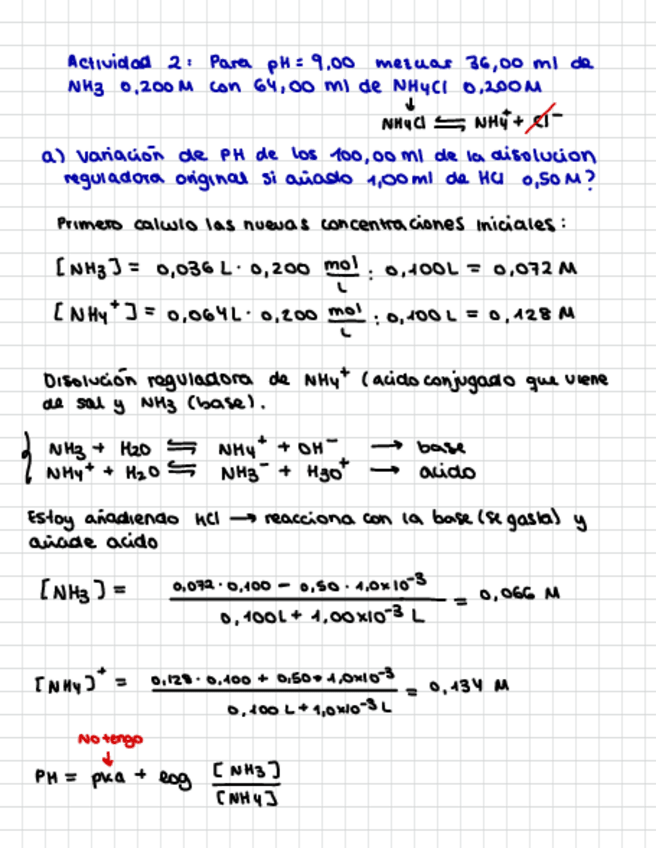 Actividad 2: Para pH = 9,00 mezclar 36,00 ml de
NH3 0,200 M con 64,00 ml de NH4Cl 0,200M
↓
NH4Cl ⇌ NH4+ + Cl-
a) Variación de PH de los 100,00 ml de la disolucion
reguladora original si añado 1,00 ml de HCl 0,50 M?
Primero calculo las nuevas concentraciones iniciales:
[NH3] = 0,036 L · 0,200 mol/L : 0,100L = 0,072 M
[NH4+] = 0,064L · 0,200 mol/L : 0,100L = 0,128 M
Disolución reguladora de NH4+ (acido conjugado que viene
de sal y NH3 (base).
{ NH3 + H2O ⇌ NH4+ + OH- → base
NH4+ + H2O ⇌ NH3- + H3O+ → acido
Estoy añadiendo HCl → reacciona con la base (se gasta) y
añade acido
[NH3] = 0,072 · 0,100 - 0,50 · 1,0x10-3 / 0,100L + 1,00x10-3 L = 0,066 M
[NH4]+ = 0,128 · 0,100 + 0,50 · 1,0x10-3 / 0,100 L + 1,0x10-3 L = 0,134 M
No tengo
↓
PH = pka + log [NH3] / [NH4]